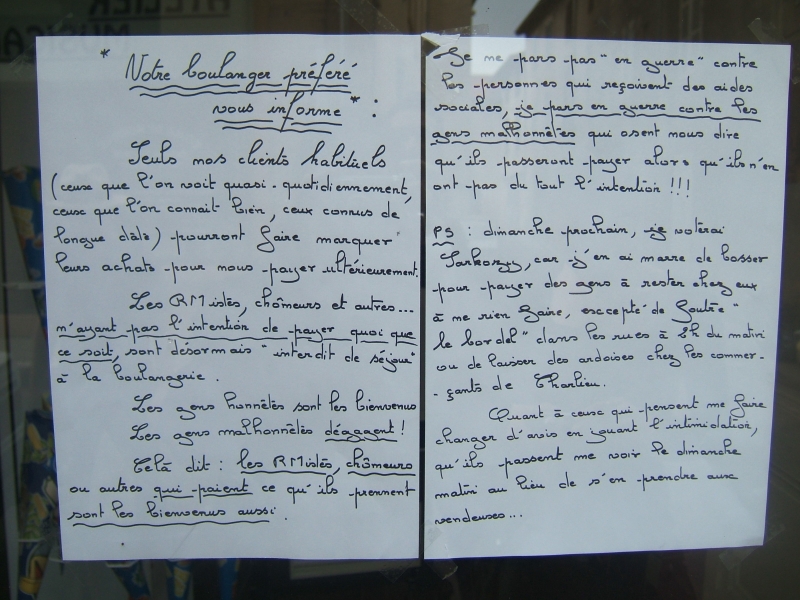 ATELIER
MUSICA
* Notre boulanger préféré
vous informe * :
Seuls nos clients habituels
(ceux que l'on voit quasi-quotidiennement,
ceux que l'on connait bien, ceux connus de
longue date) pourront faire marquer
leurs achats pour nous payer ultérieurement.
Les RMistes, chômeurs et autres...
n'ayant pas l'intention de payer quoi que
ce soit, sont désormais "interdit de séjour"
à la boulangerie.
Les gens honnêtes sont les bienvenus
Les gens malhonnêtes dégagent !
Celà dit : les RMistes, chômeurs
ou autres qui paient ce qu'ils prennent
sont les bienvenus aussi.
Je me pars pas "en guerre" contre
les personnes qui reçoivent des aides
sociales, je pars en guerre contre les
gens malhonnêtes qui osent nous dire
qu'ils passeront payer alors qu'ils n'en
ont pas du tout l'intention !!!
PS : dimanche prochain, je voterai
Sarkozy, car j'en ai marre de bosser
pour payer des gens à rester chez eux
à ne rien faire, excepté de foutre "
le bordel" dans les rues à 2h du matin
ou de laisser des ardoises chez les commer-
-çants de Charlieu.
Quant à ceux qui pensent me faire
changer d'avis en jouant l'intimidation,
qu'ils passent me voir le dimanche
matin au lieu de s'en prendre aux
vendeuses...